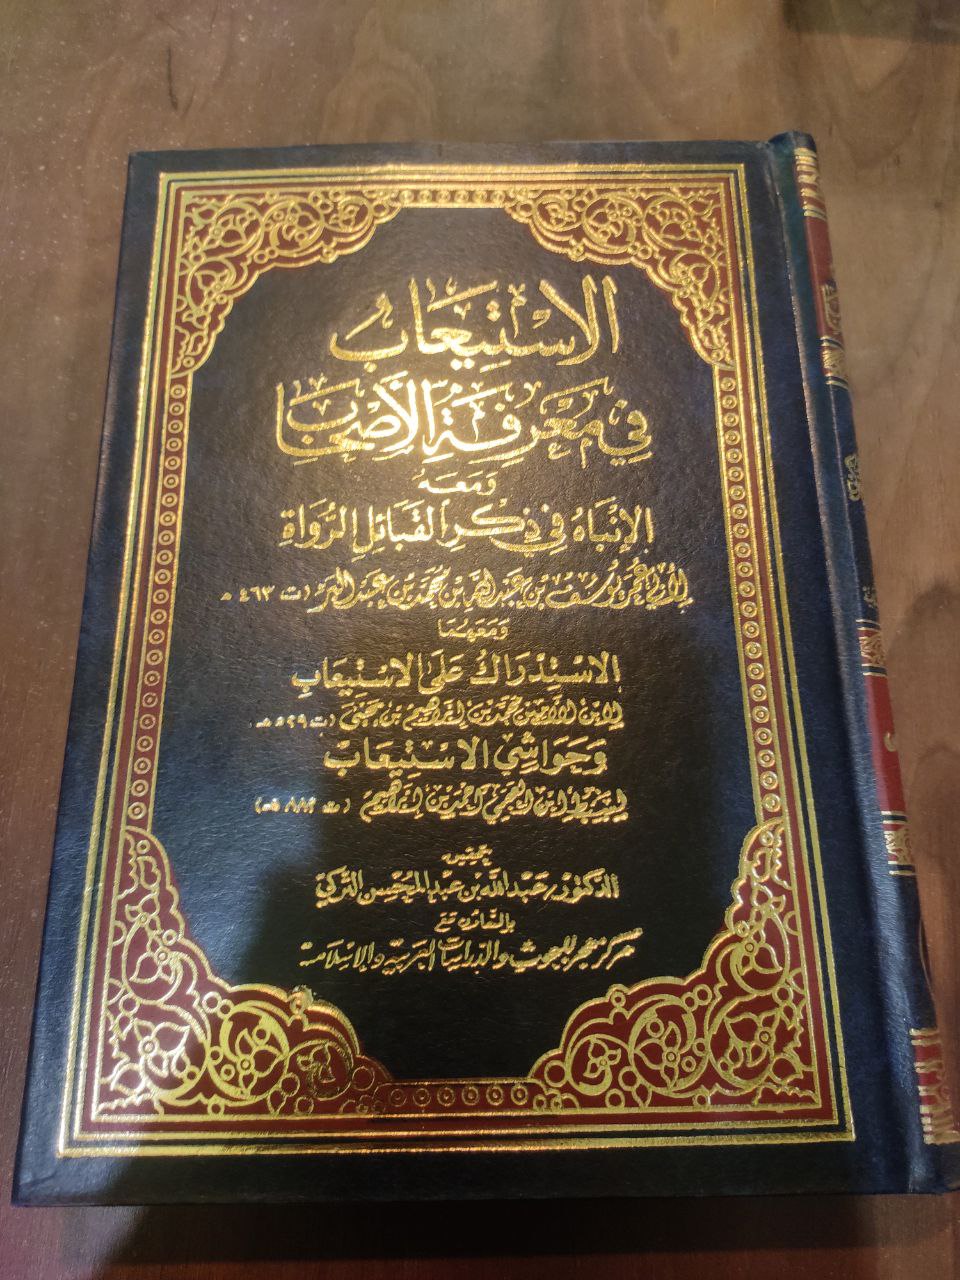 الاسْتِيعَاب
فِي مَعْرِفَةِ الأَصْحَابِ
وَمَعَهُ
الإِنْبَاهُ فِي ذِكْرِ القَبَائِلِ الرُّوَاةِ
لأبي عمر يوسف بن عبد الله بن محمد بن عبد البر (ت ٤٦٣ هـ
وَمَعَهُمَا
الاسْتِدْرَاكُ عَلَى الاسْتِيعَابِ
لابن الأمين محمد بن إبراهيم بن يحيى (ت ٥٢٩ هـ
وَحَوَاشِي الاسْتِيعَاب
لسبط ابن العجمي أحمد بن إبراهيم (ت ٨٨٤ هـ)
تحقيق
الدكتور عبد الله بن عبد المحسن التركي
بالتعاون مع
مركز هجر للبحوث والدراسات العربية والإسلامية